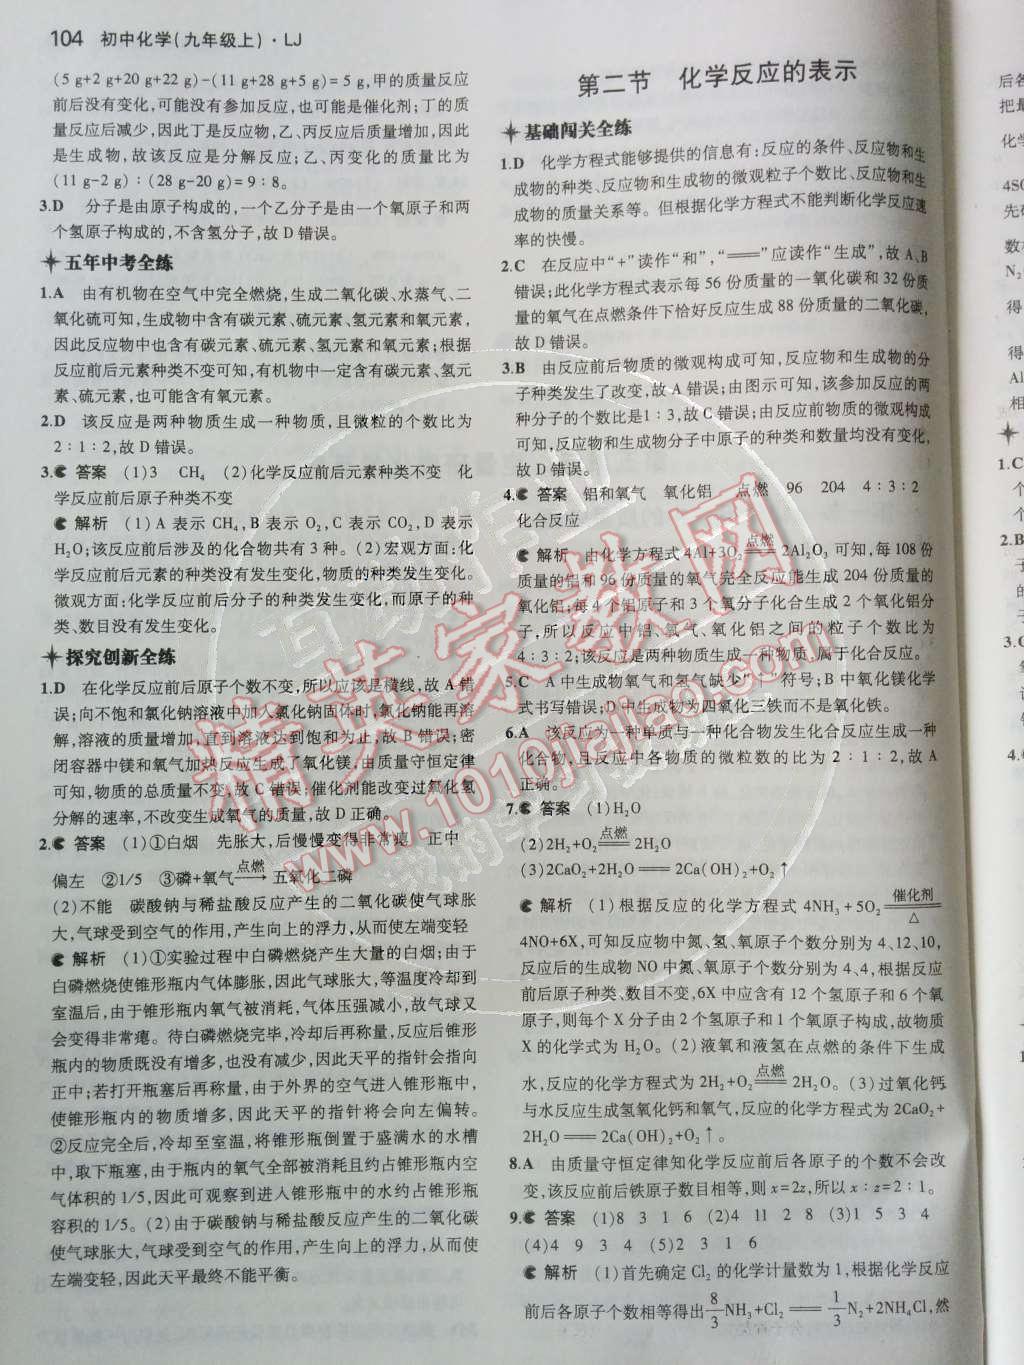 104 初中化学(九年级上)·LJ
(5 g+2 g+20 g+22 g)-(11 g+28 g+5 g)=5 g,甲的质量反应
前后没有变化,可能没有参加反应,也可能是催化剂;丁的质
量反应后减少,因此丁是反应物,乙、丙反应后质量增加,因此
是生成物,故该反应是分解反应;乙、丙变化的质量比为
(11 g-2 g)∶(28 g-20 g)=9∶8。
3.D 分子是由原子构成的,一个乙分子是由一个氧原子和两
个氢原子构成的,不含氢分子,故 D 错误。
五年中考全练
1.A 由有机物在空气中完全燃烧,生成二氧化碳、水蒸气、二
氧化硫可知,生成物中含有碳元素、硫元素、氢元素和氧元素,
因此反应物中也含有碳元素、硫元素、氢元素和氧元素;根据
反应前后元素种类不变可知,有机物中一定含有碳元素、氢元
素、硫元素,也可能含有氧元素。
2.D 该反应是两种物质生成一种物质,且微粒的个数比为
2∶1∶2,故 D 错误。
3. 答案 (1)3 CH₄ (2)化学反应前后元素种类不变 化
学反应前后原子种类不变
解析 (1)A 表示 CH₄,B 表示 O₂,C 表示 CO₂,D 表示
H₂O;该反应前后涉及的化合物共有 3 种。(2)宏观方面:化
学反应前后元素的种类没有发生变化,物质的种类发生变化。
微观方面:化学反应前后分子的种类发生变化,而原子的种
类、数目没有发生变化。
探究创新全练
1.D 在化学反应前后原子个数不变,所以应该是横线,故 A 错
误;向不饱和氯化钠溶液中加入氯化钠固体时,氯化钠能再溶
解,溶液的质量增加,直到溶液达到饱和为止,故 B 错误;密
闭容器中镁和氧气加热反应生成了氧化镁,由质量守恒定律
可知,物质的总质量不变,故 C 错误;催化剂能改变过氧化氢
分解的速率,不改变生成氧气的质量,故 D 正确。
2. 答案 (1)①白烟 先胀大,后慢慢变得非常瘪 正中
偏左 ②1/5 ③磷+氧气 —点燃→ 五氧化二磷
(2)不能 碳酸钠与稀盐酸反应产生的二氧化碳使气球胀
大,气球受到空气的作用,产生向上的浮力,从而使左端变轻
解析 (1)①实验过程中白磷燃烧产生大量的白烟;由于
白磷燃烧使锥形瓶内气体膨胀,因此气球胀大,等温度冷却到
室温后,由于锥形瓶内氧气被消耗,气体压强减小,故气球又
会变得非常瘪。待白磷燃烧完毕,冷却后再称量,反应后锥形
瓶内的物质既没有增多,也没有减少,因此天平的指针会指向
正中;若打开瓶塞后再称量,由于外界的空气进入锥形瓶中,
使锥形瓶内的物质增多,因此天平的指针将会向左偏转。
②反应完全后,冷却至室温,将锥形瓶倒置于盛满水的水槽
中,取下瓶塞,由于瓶内的氧气全部被消耗且约占锥形瓶内空
气体积的 1/5,因此可观察到进入锥形瓶中的水约占锥形瓶
容积的 1/5。(2)由于碳酸钠与稀盐酸反应产生的二氧化碳
使气球胀大,气球受到空气的作用,产生向上的浮力,从而使
左端变轻,因此天平最终不能平衡。
第二节 化学反应的表示
基础闯关全练
1.D 化学方程式能够提供的信息有:反应的条件、反应物和生
成物的种类、反应物和生成物的微观粒子个数比、反应物和生
成物的质量关系等。但根据化学方程式不能判断化学反应速
率的快慢。
2.C 在反应中“+”读作“和”,“══”应读作“生成”,故 A、B
错误;此化学方程式表示每 56 份质量的一氧化碳和 32 份质
量的氧气在点燃条件下恰好反应生成 88 份质量的二氧化碳,
故 D 错误。
3.B 由反应前后物质的微观构成可知,反应物和生成物的分
子种类发生了改变,故 A 错误;由图示可知,该参加反应的两
种分子的个数比是 1∶3,故 C 错误;由反应前物质的微观构成
可知,反应物和生成物分子中原子的种类和数量均没有变化,
故 D 错误。
4. 答案 铝和氧气 氧化铝 点燃 96 204 4∶3∶2
化合反应
解析 由化学方程式 4Al+3O₂ ══点燃══ 2Al₂O₃ 可知,每 108 份
质量的铝和 96 份质量的氧气完全反应能生成 204 份质量的
氧化铝;每 4 个铝原子和 3 个氧分子化合生成 2 个氧化铝分
子,所以反应中铝、氧气、氧化铝之间的粒子个数比为
4∶3∶2;该反应是两种物质生成一种物质,属于化合反应。
5.C A 中生成物氧气和氢气缺少“↑”符号;B 中氧化镁化学
式书写错误;D 中生成物为四氧化三铁而不是氧化铁。
6.A 该反应为一种单质与一种化合物发生化合反应生成一种
化合物,且反应中各物质的微粒数的比为 2∶1∶2,故 A
正确。
7. 答案 (1)H₂O
(2)2H₂+O₂ ══点燃══ 2H₂O
(3)2CaO₂+2H₂O══2Ca(OH)₂+O₂↑
解析 (1)根据反应的化学方程式 4NH₃+5O₂ ══催化剂/△══
4NO+6X,可知反应物中氮、氢、氧原子个数分别为 4、12、10,
反应后的生成物 NO 中氮、氧原子个数分别为 4、4,根据反应
前后原子种类、数目不变,6X 中应含有 12 个氢原子和 6 个氧
原子,则每个 X 分子由 2 个氢原子和 1 个氧原子构成,故物质
X 的化学式为 H₂O。(2)液氧和液氢在点燃的条件下生成
水,反应的化学方程式为 2H₂+O₂ ══点燃══ 2H₂O。(3)过氧化钙
与水反应生成氢氧化钙和氧气,反应的化学方程式为 2CaO₂+
2H₂O══2Ca(OH)₂+O₂↑。
8.A 由质量守恒定律知化学反应前后各原子的个数不会改
变,该反应前后铁原子数目相等,则 x=2z,所以 x∶z=2∶1。
9. 答案 (1)8 3 1 6 (2)4 11 2 8 (3)1 5 3 4
(4)4 9 3 4 (5)2 3 1 6
解析 (1)首先确定 Cl₂ 的化学计量数为 1,根据化学反应
前后各原子个数相等得出 8/3 NH₃+Cl₂══1/3 N₂+2NH₄Cl,然
后各
把最
化学
4SO
先确
数
N₂
得
得
Al
相
1.C
个
个
2.B
子
的
子
3.
4.
精英家教网
www.1010jiajiao.com